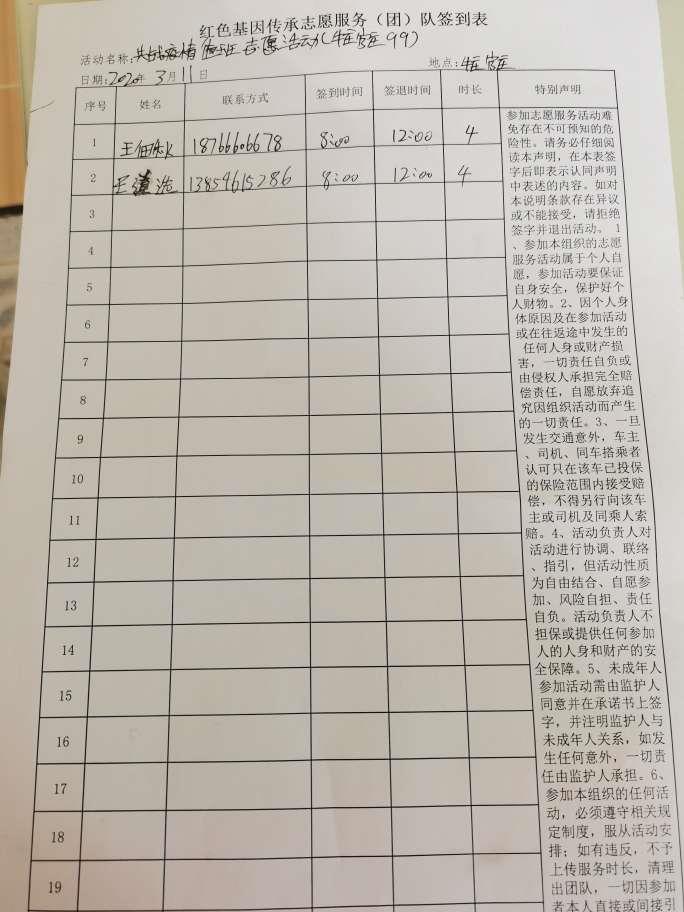 红色基因传承志愿服务（团）队签到表
活动名称：共战疫情 值班 志愿活动(
99)
日期：2020年 3月11日
地点：
序号 姓名 联系方式 签到时间 签退时间 时长 特别声明
1 王 18766606678 8:00 12:00 4
2 王 浩 13854615286 8:00 12:00 4
3
4
5
6
7
8
9
10
11
12
13
14
15
16
17
18
19
参加志愿服务活动难
免存在不可预知的危
险性。请务必仔细阅
读本声明，在本表签
字后即表示认同声明
中表述的内容。如对
本说明条款存在异议
或不能接受，请拒绝
签字并退出活动。 1
、参加本组织的志愿
服务活动属于个人自
愿，参加活动要保证
自身安全，保护好个
人财物。2、因个人身
体原因及在参加活动
或在往返途中发生的
任何人身或财产损
害，一切责任自负或
由侵权人承担完全赔
偿责任，自愿放弃追
究因组织活动而产生
的一切责任。3、一旦
发生交通意外，车主
、司机、同车搭乘者
认可只在该车已投保
的保险范围内接受赔
偿，不得另行向该车
主或司机及同乘人索
赔。4、活动负责人对
活动进行协调、联络
、指引，但活动性质
为自由结合、自愿参
加、风险自担、责任
自负。活动负责人不
担保或提供任何参加
人的人身和财产的安
全保障。5、未成年人
参加活动需由监护人
同意并在承诺书上签
字，并注明监护人与
未成年人关系，如发
生任何意外，一切责
任由监护人承担。6、
参加本组织的任何活
动，必须遵守相关规
定制度，服从活动安
排；如有违反，不予
上传服务时长，清理
出团队，一切因参加
者本人直接或间接引